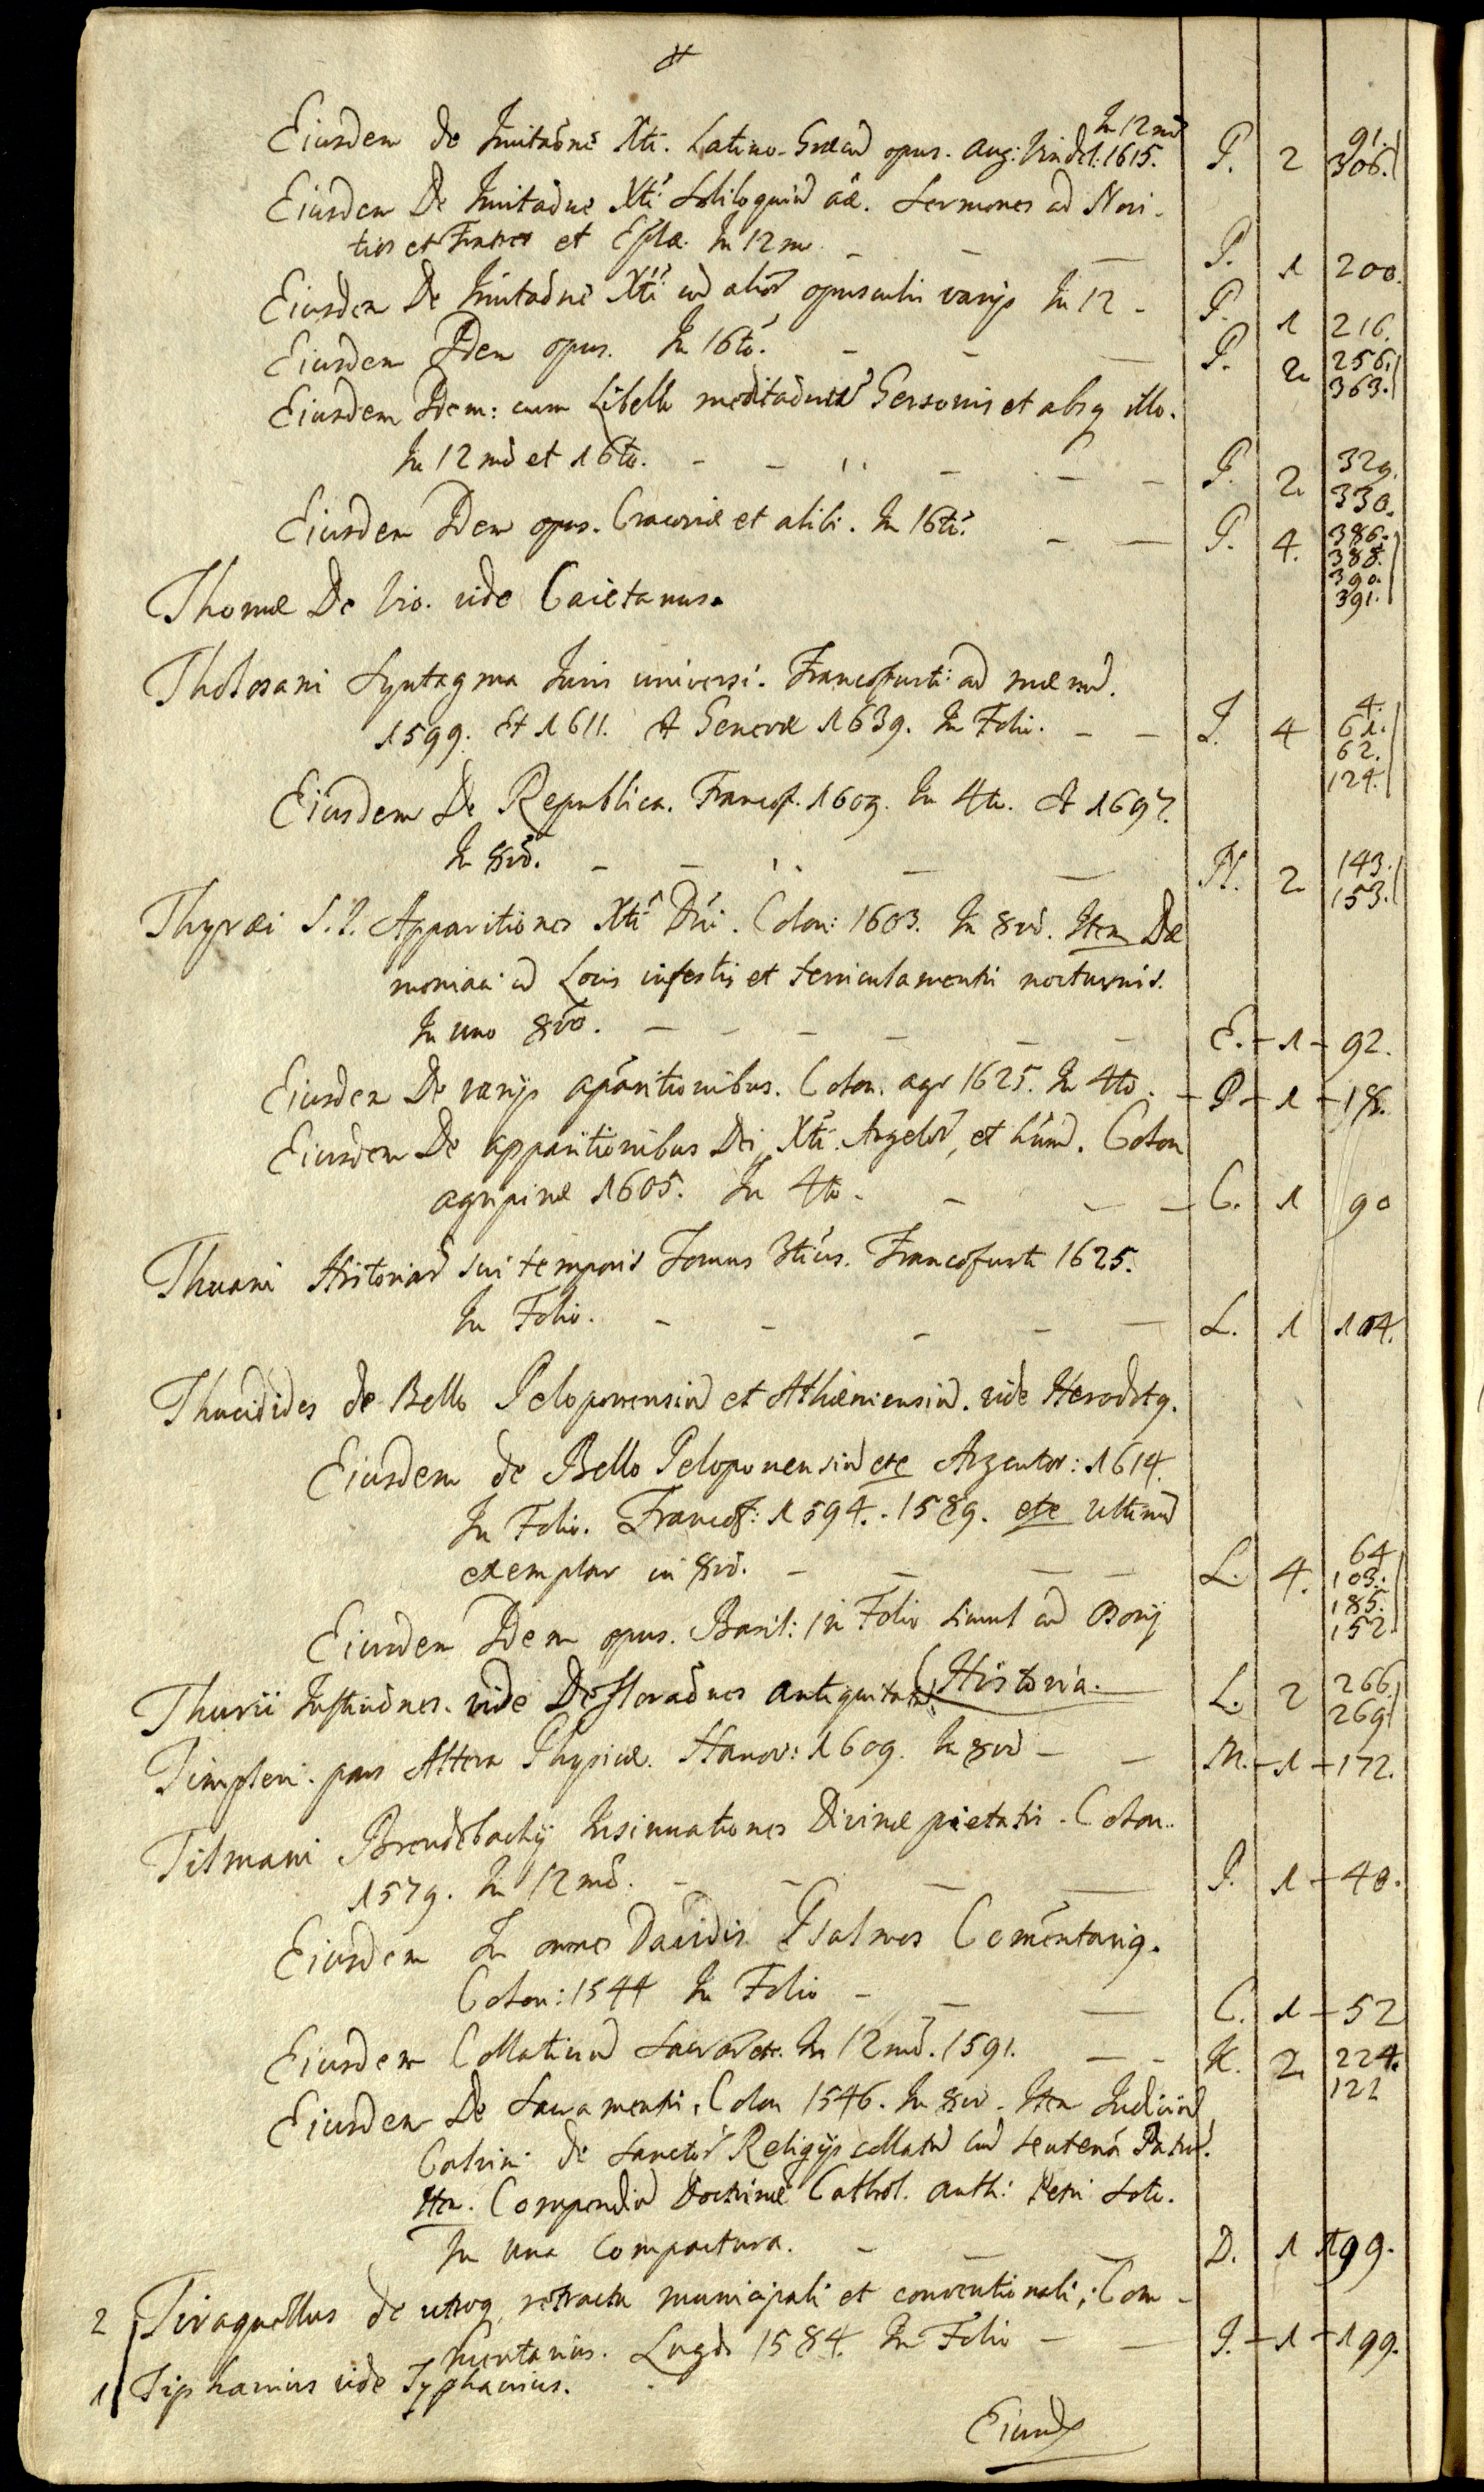 In 12mo
Eiusdem de Imitaõne Xti. Latino-Græcũ opus. Aug: Vindel: 1615. P. 2 91. 306.
Eiusdem De Imitaõne Xti Soliloquiũ aæ. Sermones ad Novi-
tios et Fratres et Eplæ. In 12mo - - - P. 1 200.
Eiusdem De Imitaõne Xti cũ alior̃ opusculis varijs In 12 - P. 1 216.
Eiusdem Idem opus. In 16to. - - - P. 2 256. 363.
Eiusdem Idem: cum Libello meditaõnũ Gersonis et absq illo.
In 12mo et 16to. - - - - - - P. 2. 329. 330.
Eiusdem Idem opus. Cracoviæ et alibi. In 16to. - - P. 4. 386. 388. 390. 391.
Thomæ De Vio. vide Caietanus.
Tholosani Syntagma Iuris universi. Francofurti ad mænũ.
1599. Et 1611. Et Genevæ 1639. In Folio. - - I. 4 4. 61. 62. 124.
Eiusdem De Republica. Francof. 1609. In 4to. Et 1697.
In 8vo. - - - - - H. 2 143. 153.
Thyræi S.I. Apparitiones Xti Dñi. Colon: 1603. In 8vo. Item Dæ
moniaci cũ Locis infestis et terriculamentis nocturnis.
In uno 8vo. - - - - - - E. - 1 - 92.
Eiusdem De varijs aparitionibus. Colon. agr 1625. In 4to. - P - 1 - 18.
Eiusdem De apparitionibus Dei, Xti. Angelor̃, et hũm̃. Colon
agripinæ 1605. In 4to. - - - C. 1 90
Thuani Historiar̃ sui temporis Tomus 3tius. Francofurti 1625.
In Folio. - - - - - L. 1 104.
Thucidides de Bello Peloponensiũ et Athæniensiũ. vide Herodotq.
Eiusdem de Bello Peloponensiũ etc Argentor: 1614.
In Folio. Francof: 1594. . 1589. etc Ultimũ
exemplar in 8vo. - - - - L. 4. 64 103. 185. 152
Eiusdem Idem opus. Basil: in Folio simul cũ
Historia. - L. 2 266. 269.
Thurii vide Defloraõnes antiquitatũ.
Timpleri. pars Altera Physicæ. Hanov: 1609. In 8vo - - M. - 1 - 172.
Titmani Bredebachij Insinuationes Divinæ pietatis. Colon.
1579. In 12mo. - - - - I. 1 - 40.
Eiusdem In omnes Davidis Psalmos Coментariq.
Colon: 1544 In Folio - - - C. 1 - 52
Eiusdem Collationũ Sacrar̃ etc. In 12mo. 1591. - - K. 2 224. 122
Eiusdem De Sacramentis, Colon 1546. In 8vo. Item Iudiciũ
Calvini de Sanctor̃ Reliqijs collatũ cũ sentená Patrũ.
Item. Compendiũ Doctrinæ Cathol. auth: Petri Soto.
In Una Compactura. - - - D. 1 199.
2 Tiraquellus de utroq retractu municipali et conventionali, Com-
mentarius. Lugd 1584. In Folio - - I. - 1 - 199.
1 Tiphanius vide Typhanius.
Eiusd